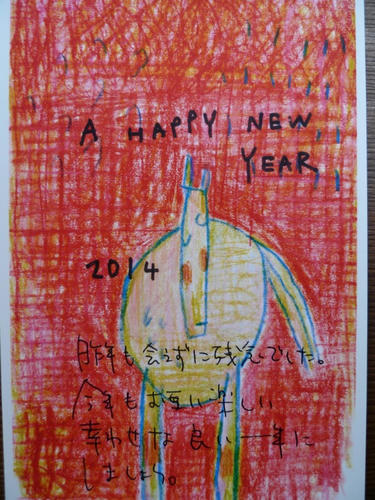 A HAPPY NEW
YEAR
2014
昨年も会えずに残念でした。
今年もお互い楽しい
幸わせな良い一年に
しましょう。